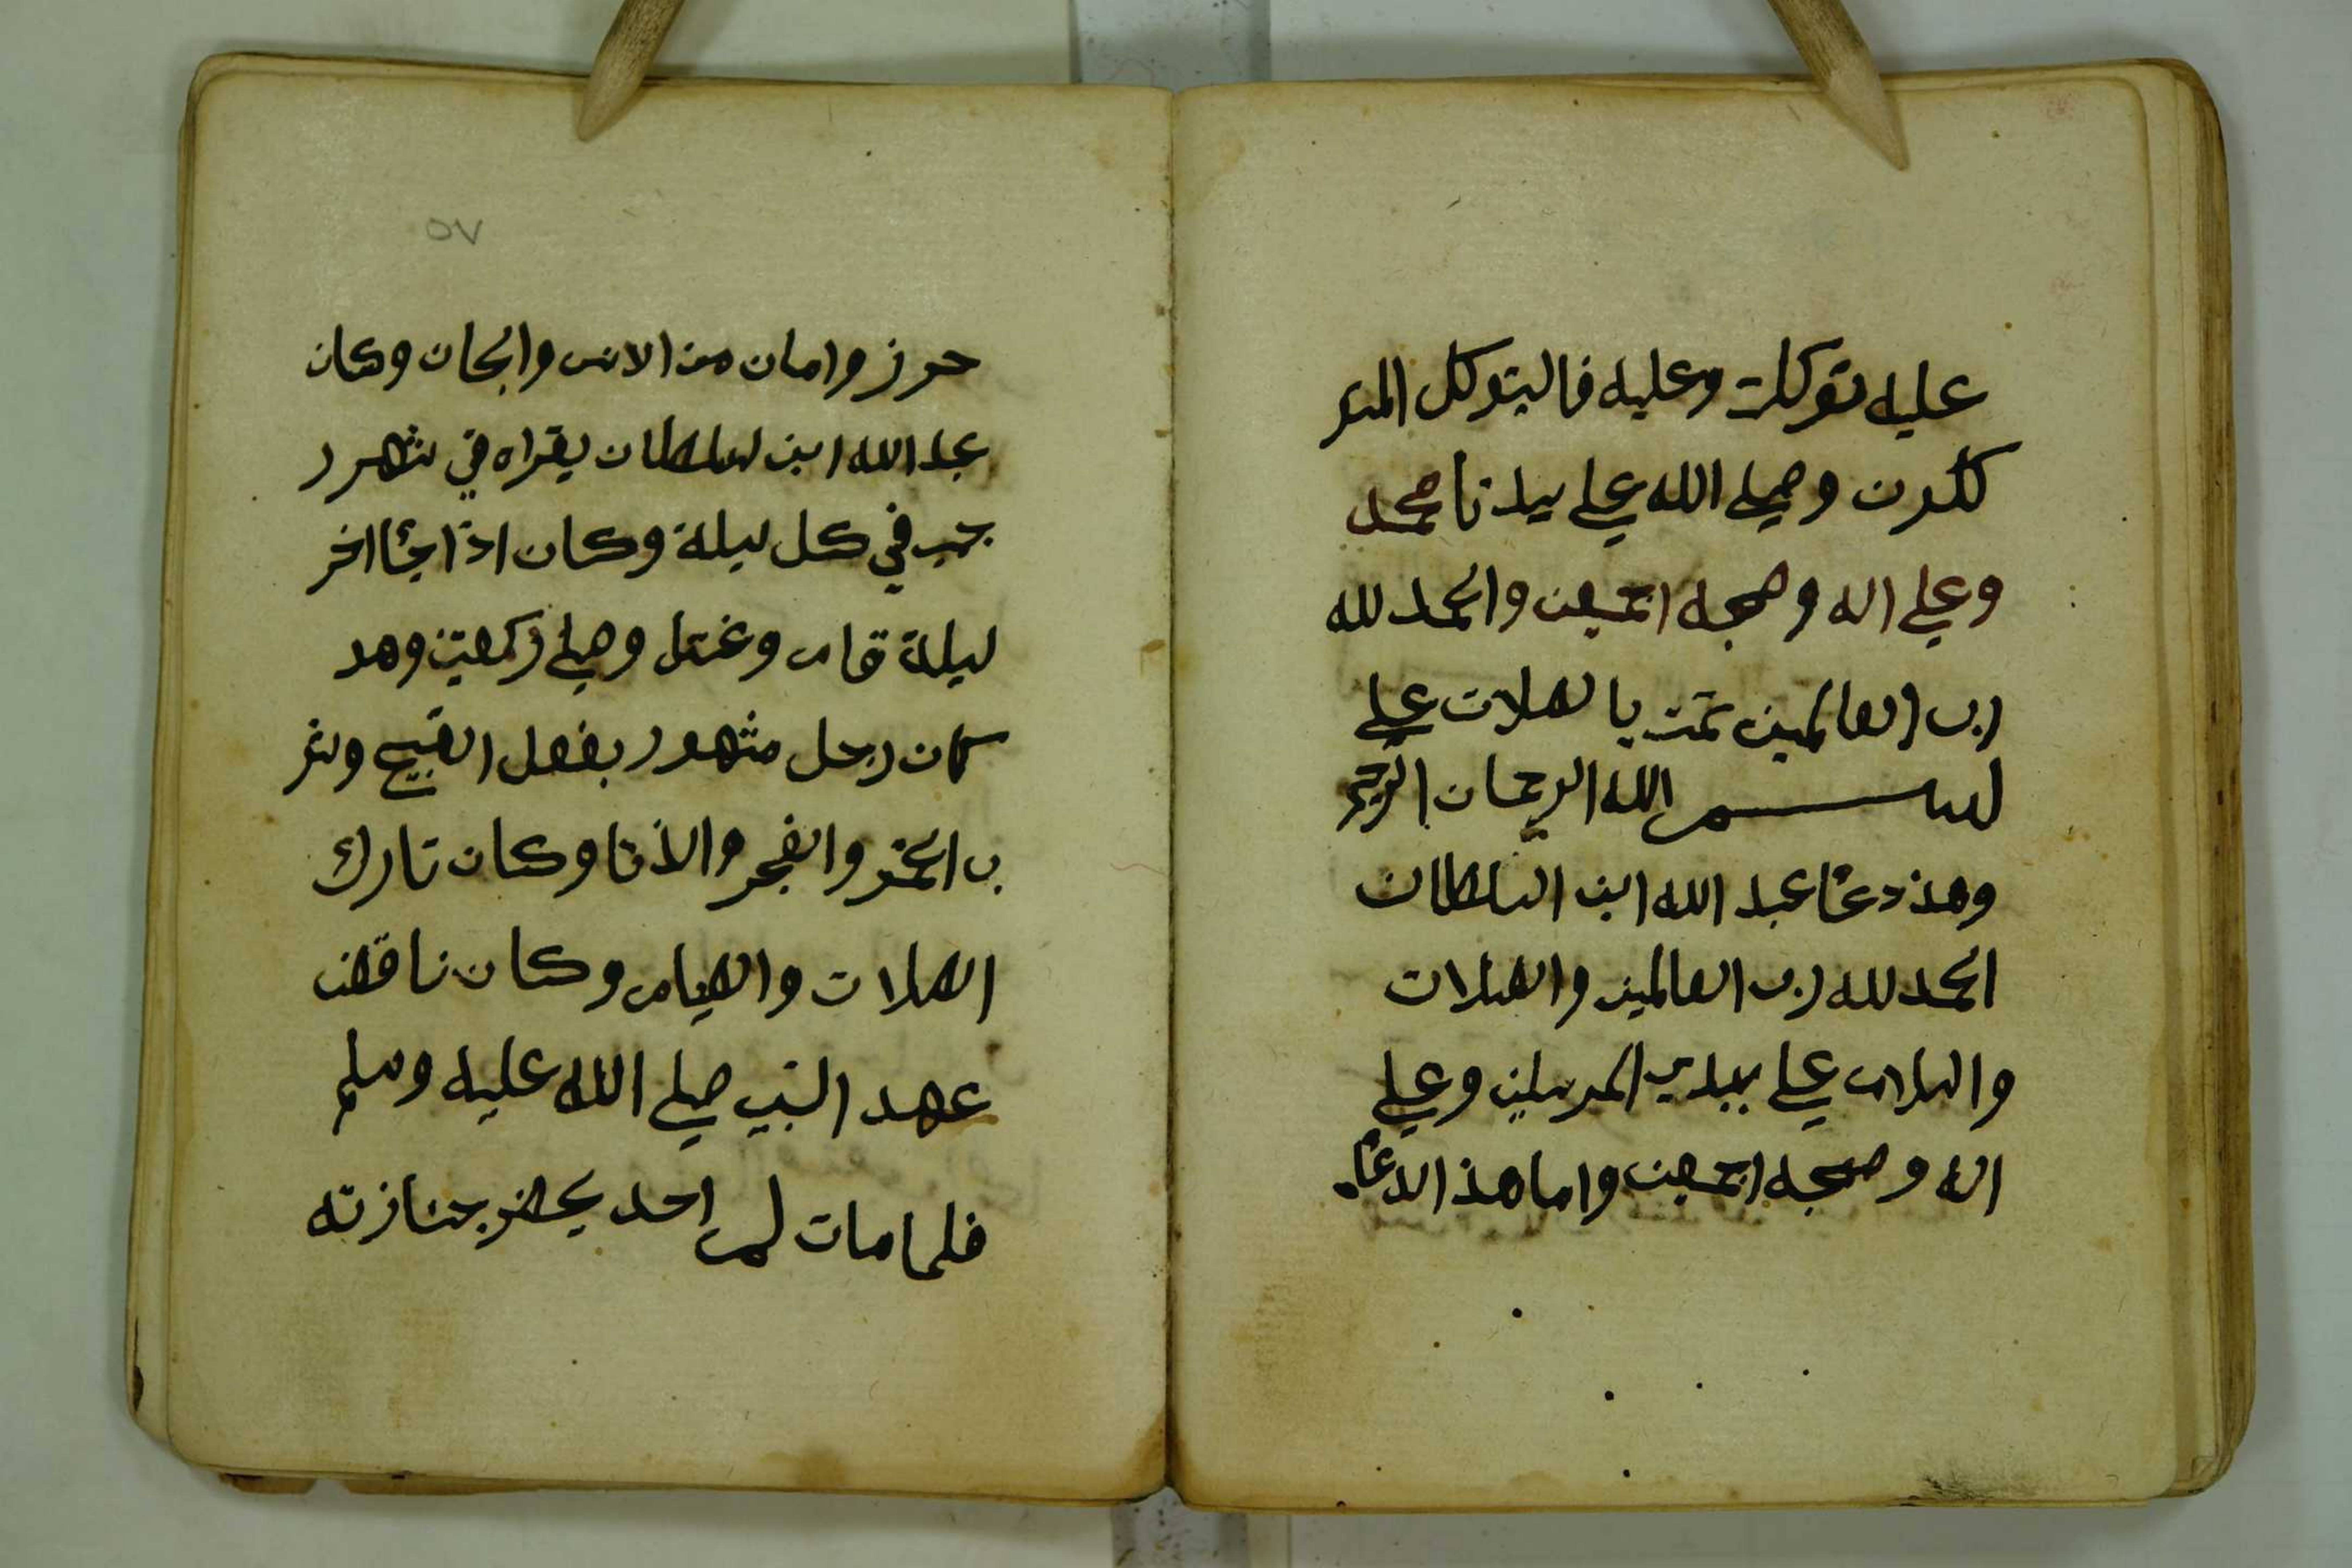 عليه توكلت وعليه فاليتوكل المتو
كلون وصلي الله علي سيدنا محمد
وعلي اله وصحبه اجمعين والحمد لله
رب العالمين تمت بالصلات علي
بسم الله الرحمان الرحيم
وهذ دعا عبد الله ابن السلطان
الحمد لله رب العالمين والصلات
والسلام علي سيدي المرسلين وعلي
اله وصحبه اجمعين واما هذ الدعاء
٥٧
حرز وامان من الانس والجان وكان
عبد الله ابن السلطان يقراه في شهر ر
جب في كل ليلة وكان اذا جئا اخر
ليلة قام وغتسل وصلي ركعتين وهو
كان رجل مشهور بفعل القبيح وشر
ب الخمر والفجر والذنا وكان تارك
الصلات والصيام وكان ناقض
عهد النبي صلي الله عليه وسلم
فلما مات لم احد يحضر بجنازته